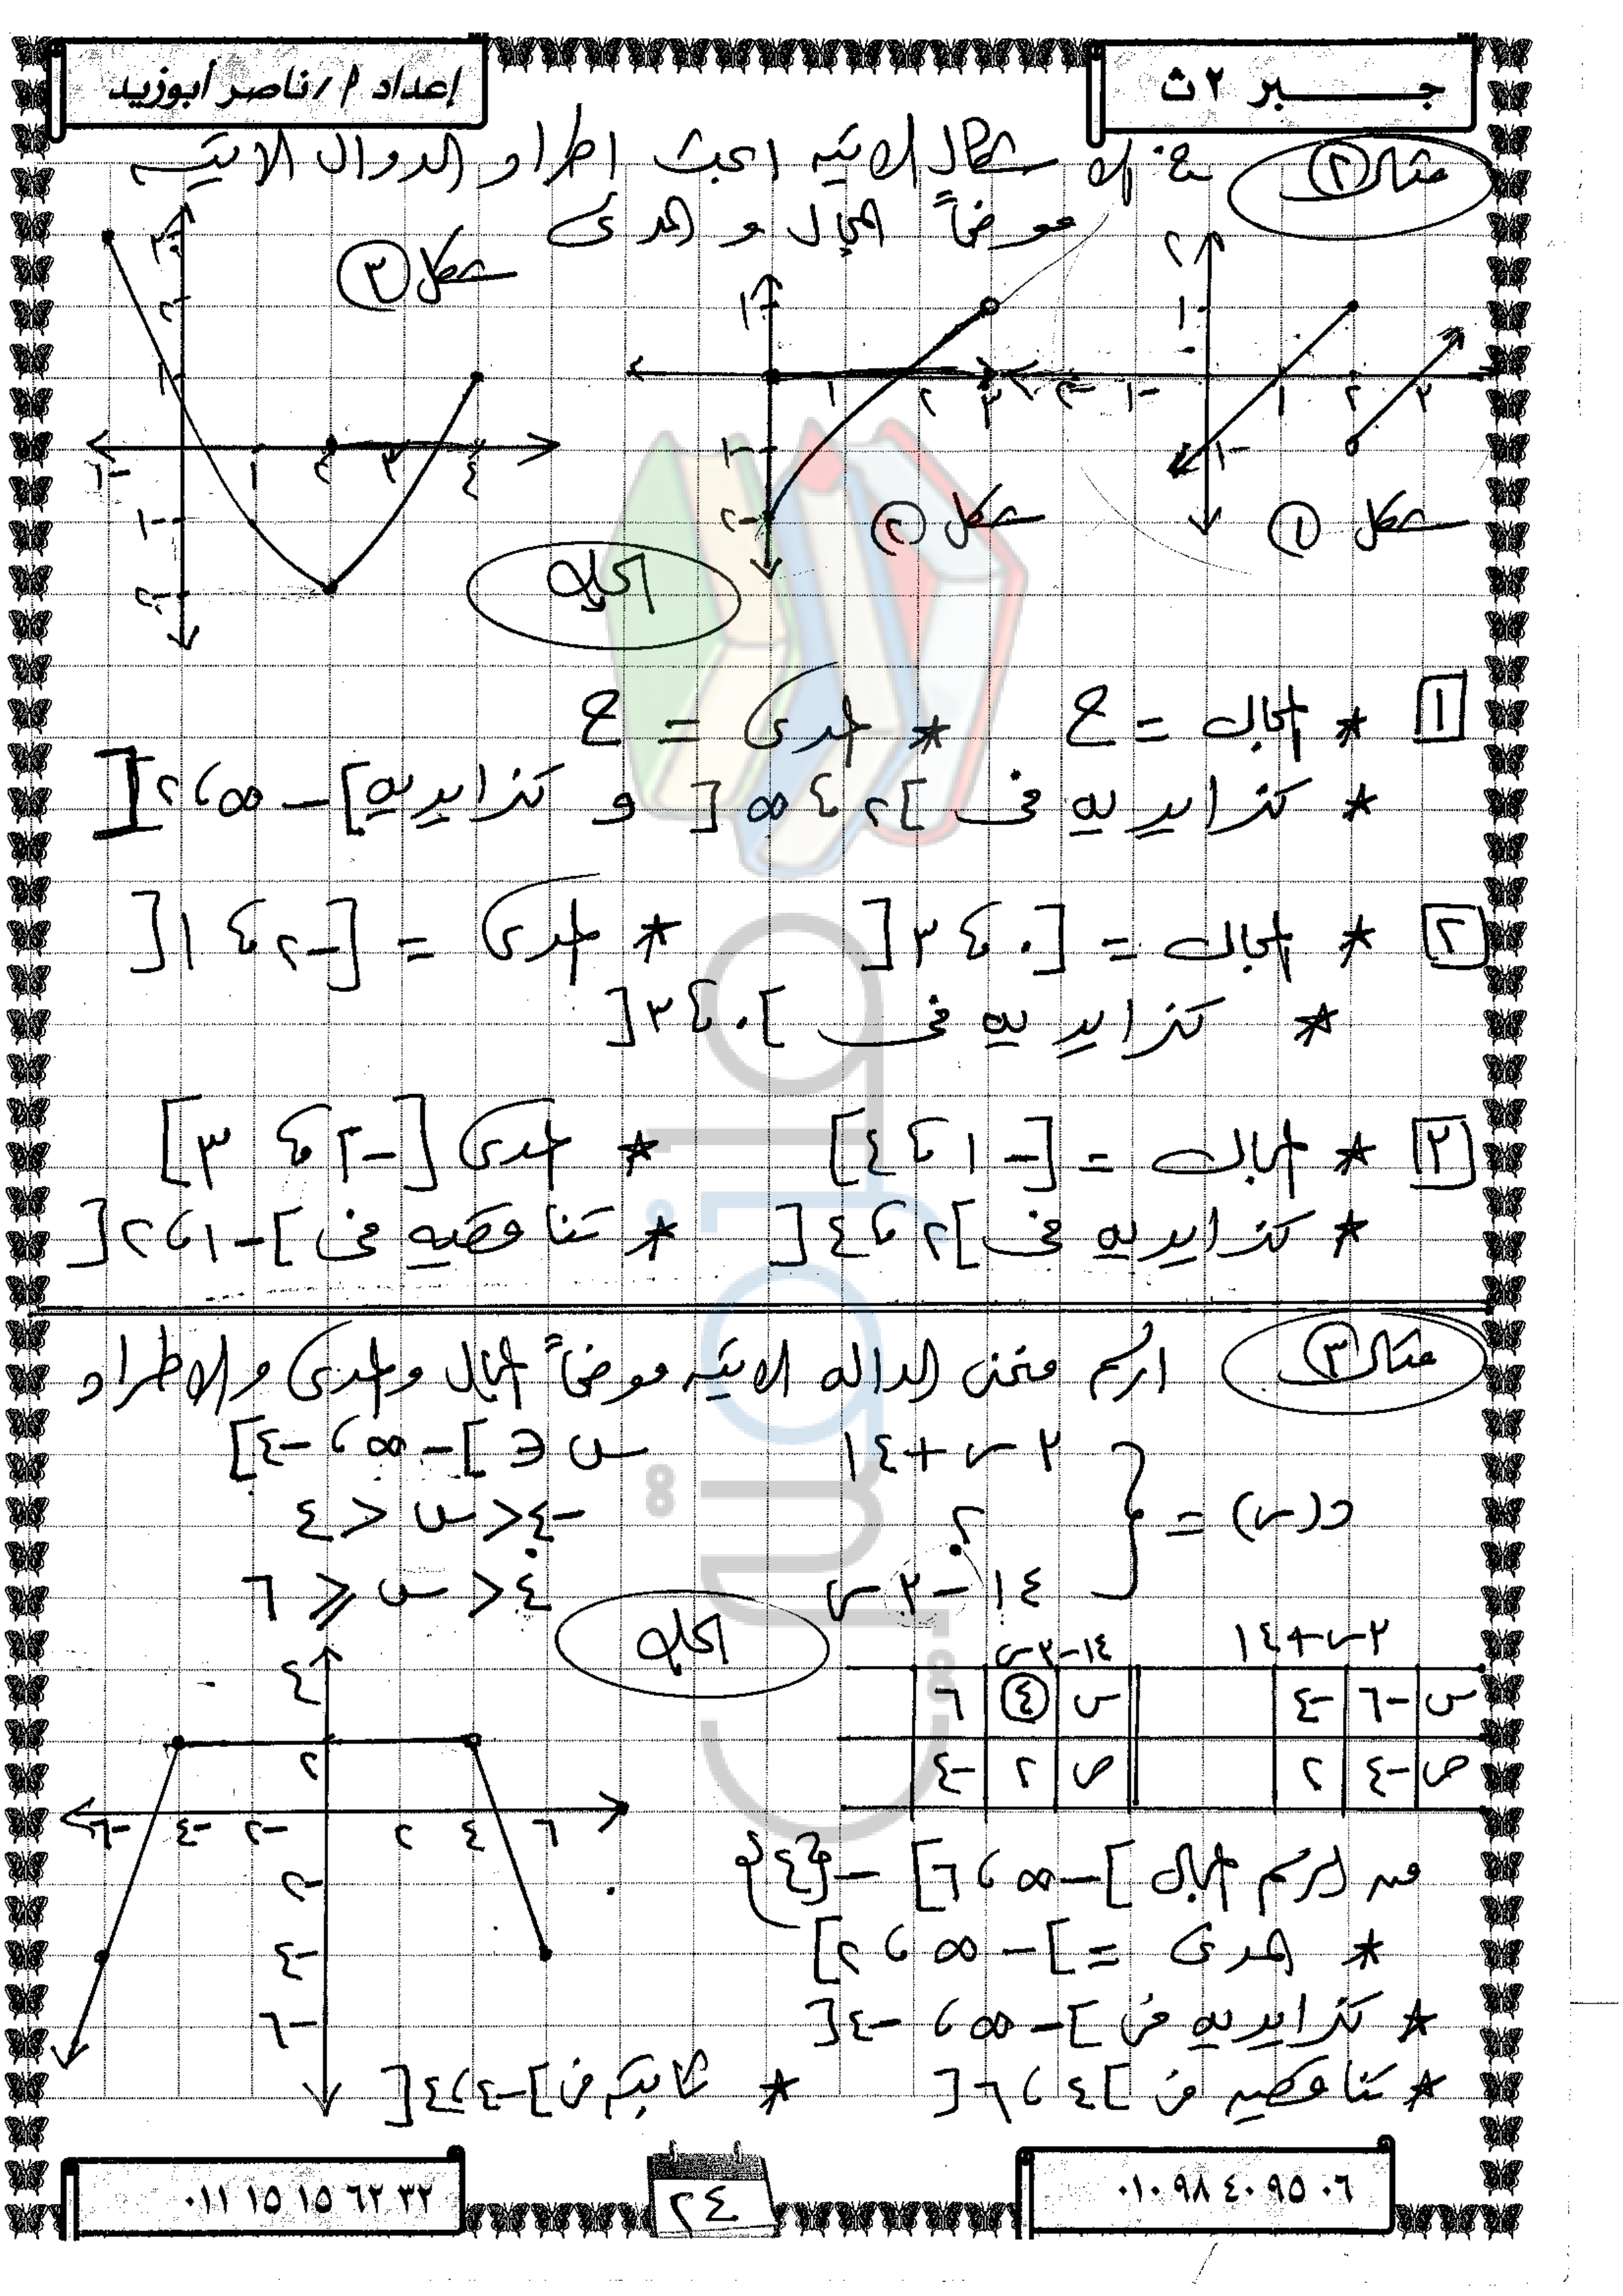 جبر ٢ ث
إعداد أ/ناصر أبوزيد
مثال ٢ الاشكال الاتيه ابحث اطراد الدوال الاتيه
موضحاً المجال و المدى
شكل ١
شكل ٢
شكل ٣
الحل
١ * المجال = ح * المدى = ح
* تزايديه فى ]٢ ، ∞[ و تزايديه ]-∞ ، ٢[
٢ * المجال = [٠ ، ٣[ * المدى = [-٢ ، ١[
* تزايديه فى ]٠ ، ٣[
٣ * المجال = [-١ ، ٤] * المدى [-٢ ، ٣]
* تزايديه فى ]٢ ، ٤[ * تناقصيه فى ]-١ ، ٢[
مثال ٣ ارسم منحنى الداله الاتيه موضحاً المجال والمدى والاطراد
٣س + ١٤ س ∈ ]-∞ ، -٤]
د(س) = { ٢ -٤ < س < ٤
١٤ - ٣س ٤ < س ≤ ٦
الحل
٣س + ١٤
س -٦ -٤
ص -٤ ٢
١٤ - ٣س
س ٤ ٦
ص ٢ -٤
من الرسم المجال ]-∞ ، ٦] - {٤}
* المدى = ]-∞ ، ٢]
* تزايديه فى ]-∞ ، -٤[
* تناقصيه فى ]٤ ، ٦[ * ثابته فى ]-٤ ، ٤[
٠١٠ ٩٨ ٤٠ ٩٥ ٠٦
٢٤
٠١١ ١٥ ١٥ ٦٢ ٣٢